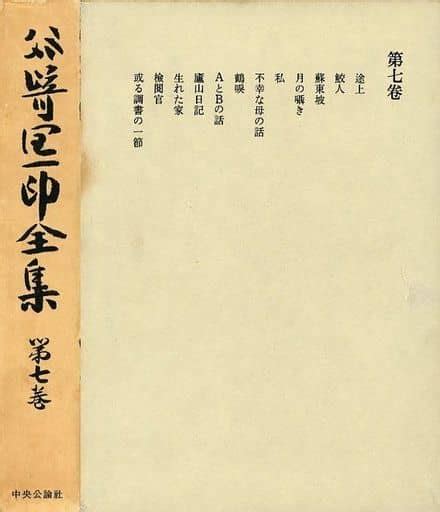 谷崎潤一郎全集 第七巻
中央公論社
第七巻
途上
鮫人
蘇東坡
月の囁き
私
不幸な母の話
鶴唳
AとBの話
廬山日記
生れた家
檢閲官
或る調書の一節